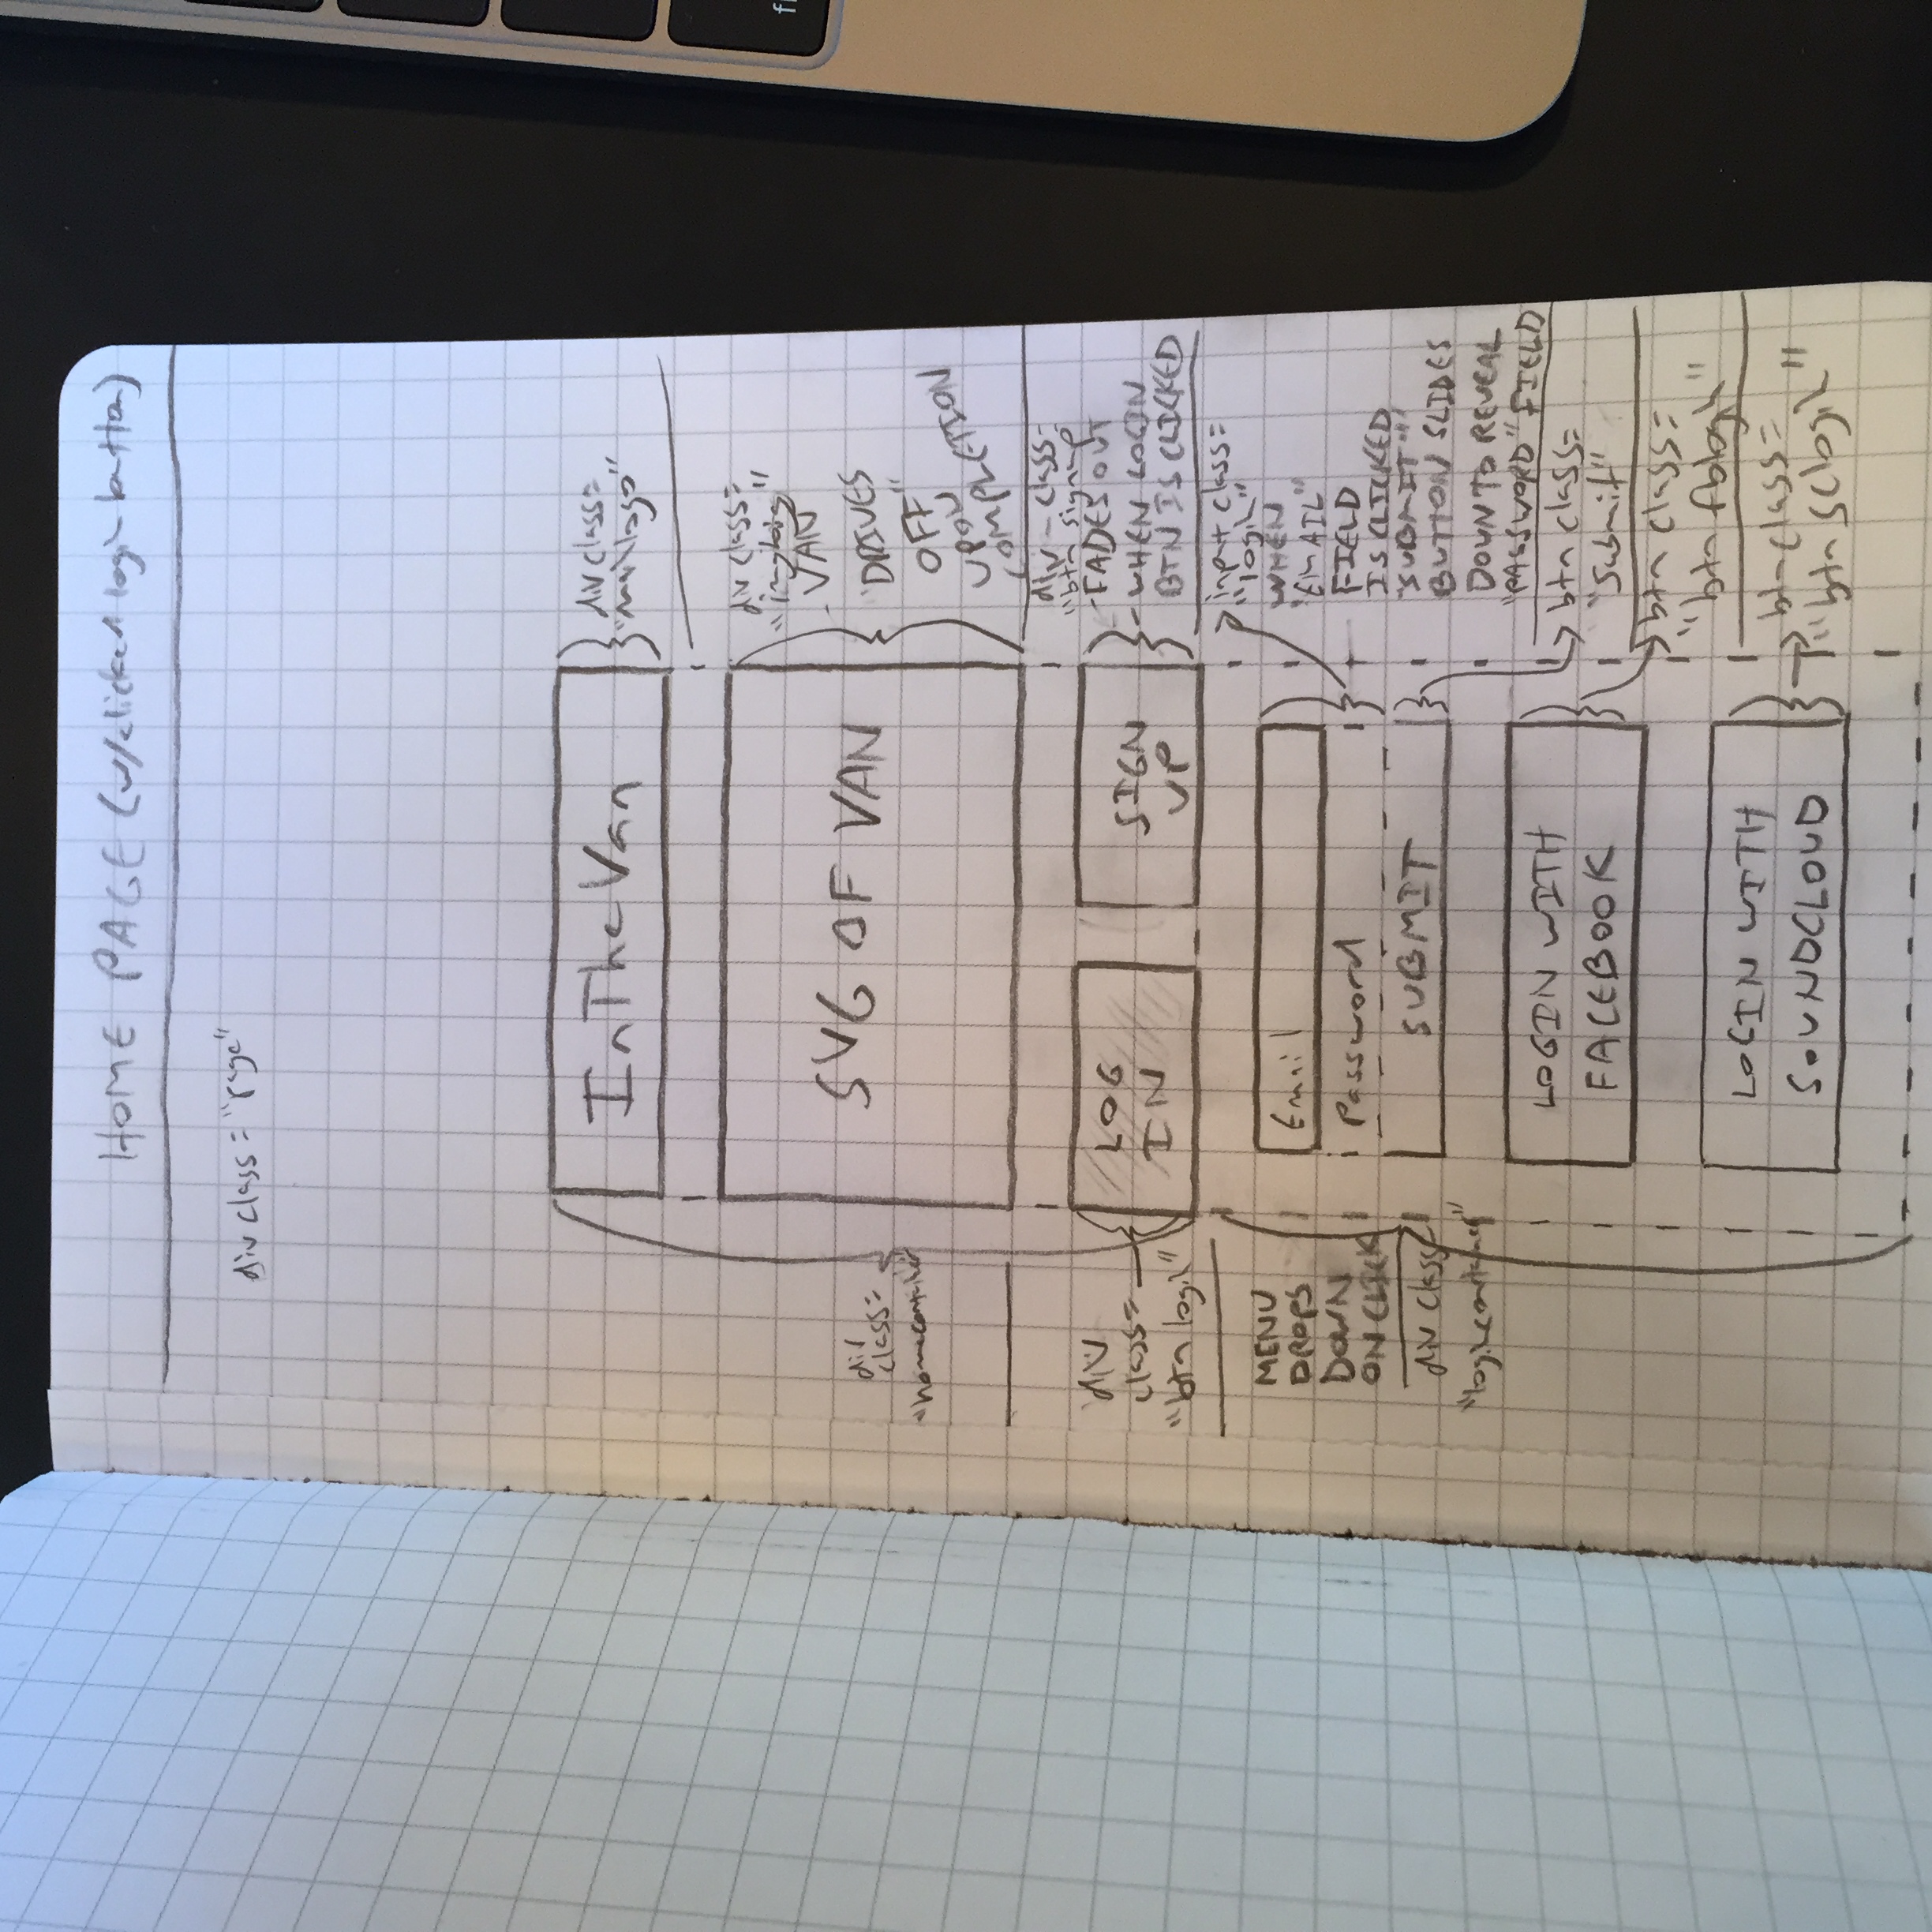 HOME PAGE (w/clicked login button)
div class = "page"
InTheVan
div class=
"mainlogo"
SVG OF VAN
div class=
"imgbig"
- VAN
"DRIVES
OFF"
UPON
COMPLETION
div
class=
"homecontainer"
div
class=
"btn login"
LOG
IN
SIGN
UP
div - class=
"btn signup
- FADES OUT
- WHEN LOGIN
BTN IS CLICKED
MENU
DROPS
DOWN
ON CLICK
div class=
"logincontainer"
Email
Password
SUBMIT
input class=
"login"
WHEN
"EMAIL"
FIELD
IS CLICKED
"SUBMIT"
BUTTON SLIDES
DOWN TO REVEAL
"PASSWORD" FIELD
btn class=
"submit"
LOGIN WITH
FACEBOOK
btn class=
"btn fblogin"
LOGIN WITH
SOUNDCLOUD
btn class=
"btn sclogin"